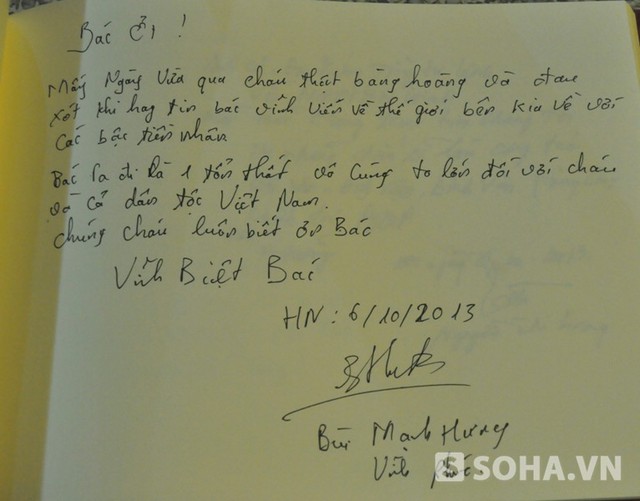 Bác ơi !
Mấy Ngày vừa qua cháu thật bàng hoàng và đau
xót khi hay tin bác vĩnh viễn về thế giới bên kia về với
các bậc tiền nhân
Bác ra đi là 1 tổn thất vô cùng to lớn đối với cháu
và cả dân tộc Việt Nam.
chúng cháu luôn biết ơn Bác
Vĩnh Biệt Bác
HN : 6/10/2013
Bùi Mạnh Hưng
Vĩnh Phúc
SOHA.VN